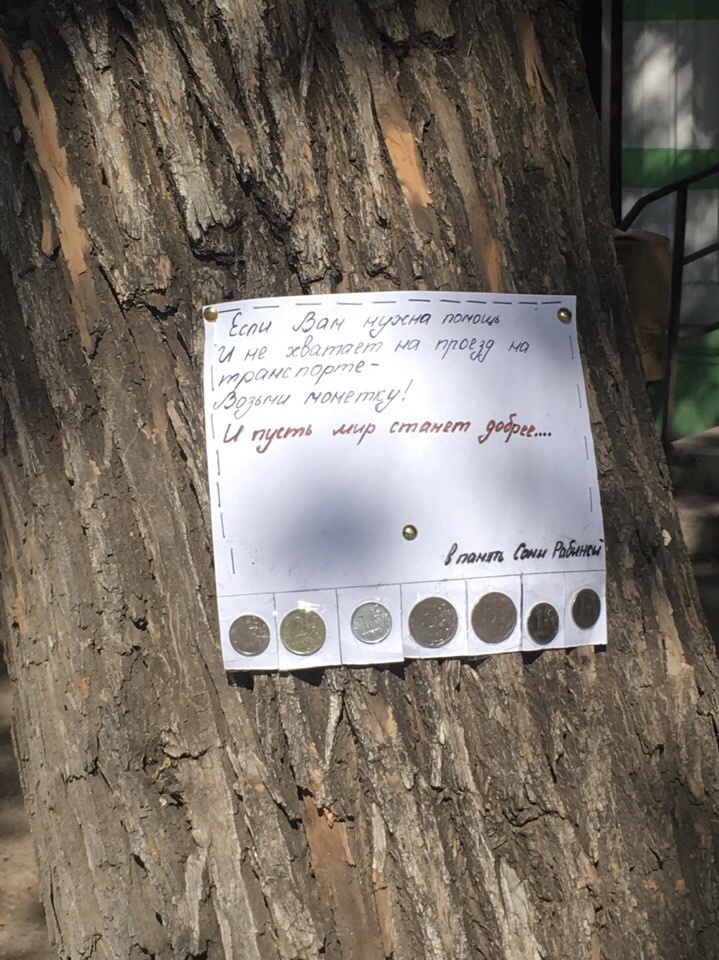 Если Вам нужна помощь
И не хватает на проезд на
транспорте-
Возьми монетку!
И пусть мир станет добрее....
в память Сони